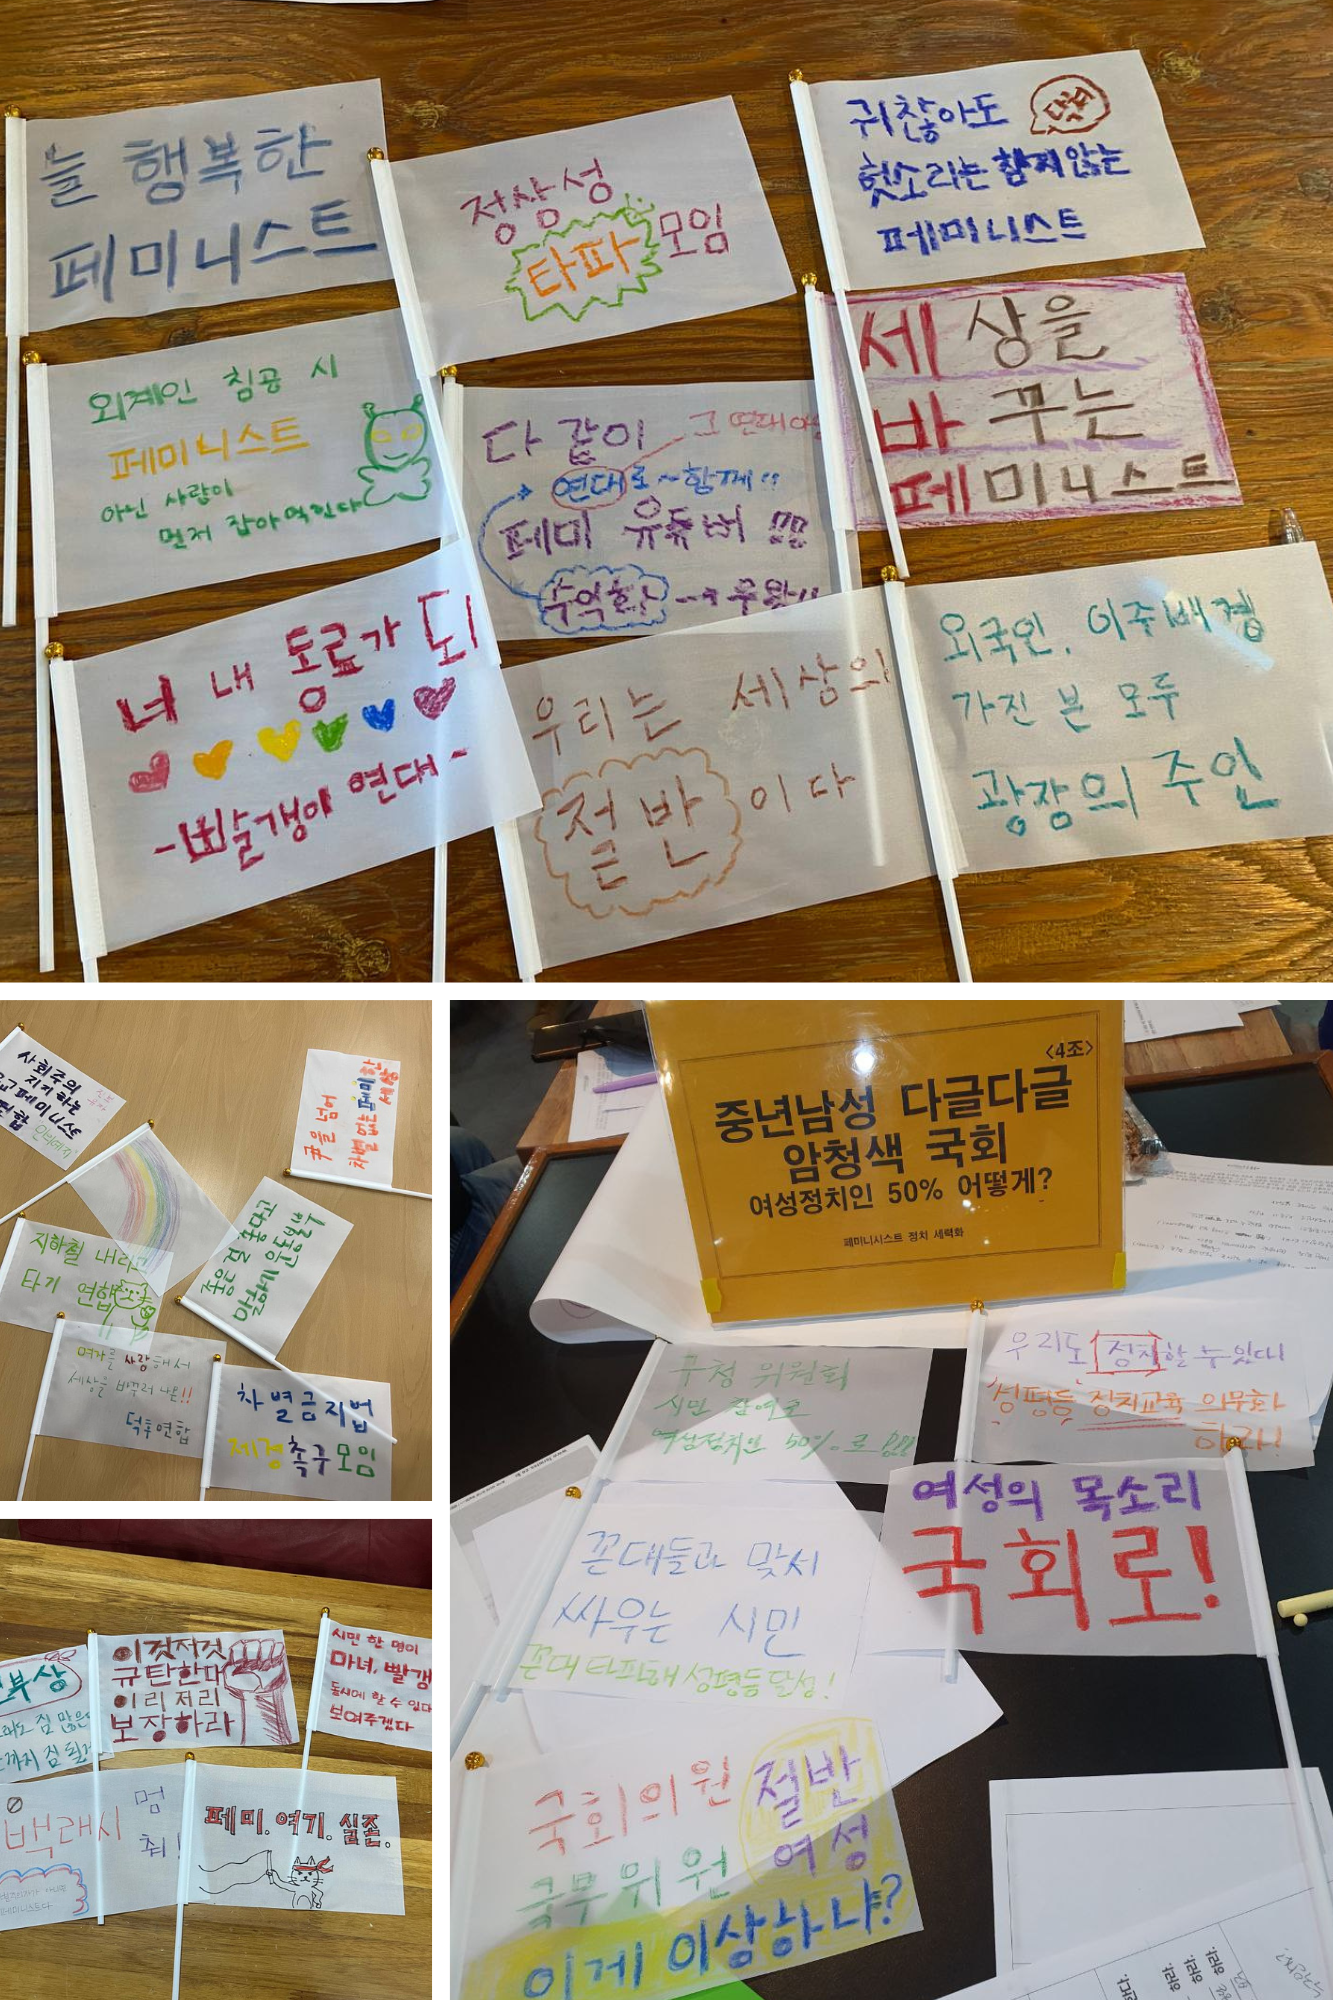 늘 행복한
페미니스트
정상성
타파 모임
귀찮아도
헛소리는 참지 않는
페미니스트
외계인 침공 시
페미니스트
아닌 사람이
먼저 잡아먹힌다
다 같이
그 연대
연대로~함께!!
페미 유튜버 !!!
수익화
세상을
바꾸는
페미니스트
너 내 동료가 되
-빨갱이 연대-
우리는 세상의
절반이다
외국인, 이주배경
가진 분 모두
광장의 주인
사회주의
지지하는
페미니스트
연합
벽을 넘어
차별 없는
세상
지하철 내리고
타기 연합
좋은 걸 좋다고
말하기 운동본부
여자를 사랑해서
세상을 바꾸러 나온!!
덕후연합
차별금지법
제정 촉구 모임
<4조>
중년남성 다글다글
암청색 국회
여성정치인 50% 어떻게?
페미니시스트 정치 세력화
규청 위원회
시민 참여로
여성정치인 50%로 !!!
우리도 정치할 수 있다
성평등 정치교육 의무화
하라!
여성의 목소리
국회로!
꼰대들과 맞서
싸우는 시민
꼰대 타파해 성평등 달성!
국회의원 절반
국무위원 여성
이게 이상하냐?
부상
짐 많은
까지 짐 될
이것저것
규탄한다
이리저리
보장하라
시민 한 명이
마녀, 빨갱
동시에 할 수 있다
보여주겠다
백래시
멈
춰!
페미니스트다
페미. 여기. 실존.